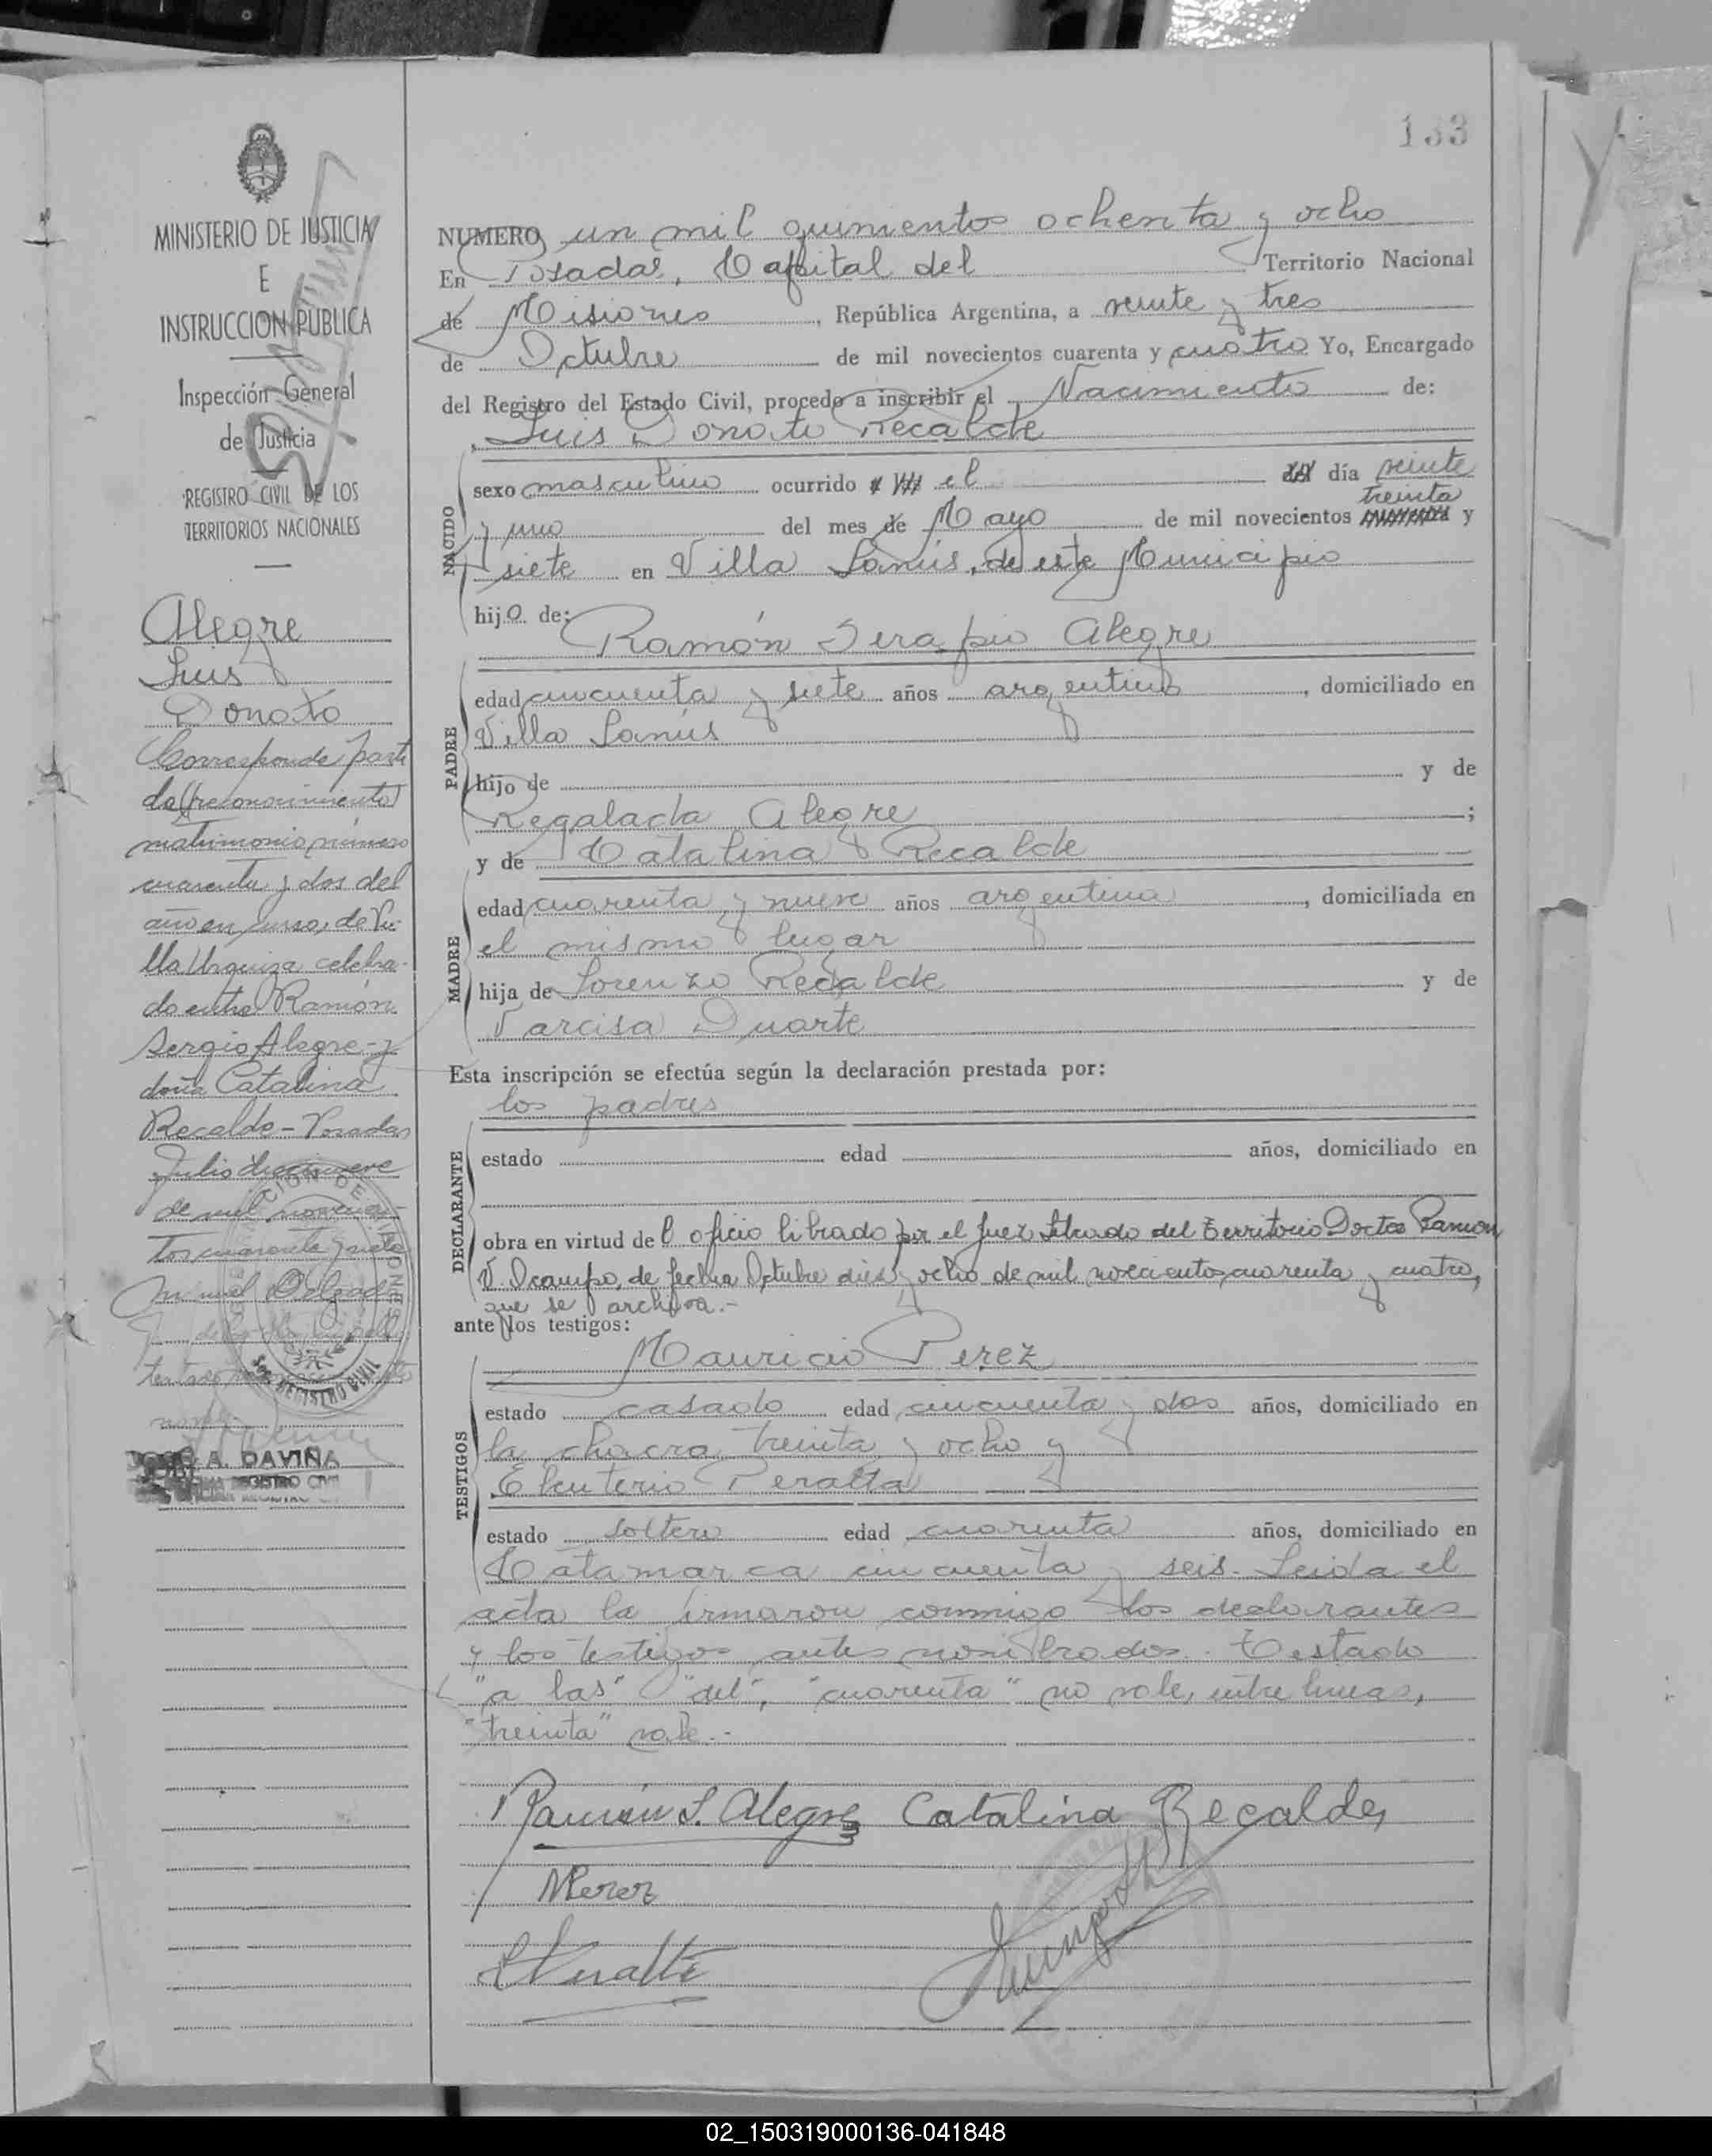 133
MINISTERIO DE JUSTICIA
E
INSTRUCCION PUBLICA
Inspección General
de Justicia
REGISTRO CIVIL DE LOS
TERRITORIOS NACIONALES
Alegre
Luis
Donato
Corresponde parti
da (reconocimiento)
matrimonio número
cuarenta y dos del
año en curso, de Vi-
lla Urquiza celebra-
do entre Ramón
Sergio Alegre y
doña Catalina
Recalde - Posadas
Julio diecinueve
de mil novecien-
tos cuarenta y siete
JOSE A. DAVIÑA
REGISTRO CIVIL
NUMERO un mil quinientos ochenta y ocho
En Posadas, Capital del Territorio Nacional
de Misiones, República Argentina, a veinte y tres
de Octubre de mil novecientos cuarenta y cuatro Yo, Encargado
del Registro del Estado Civil, procedo a inscribir el Nacimiento de:
Luis Donato Recalde
NACIDO
sexo masculino ocurrido el día veinte
treinta
y uno del mes de Mayo de mil novecientos y
siete en Villa Lanús, de este Municipio
hijo de:
Ramón Serapio Alegre
PADRE
edad cincuenta y siete años argentino, domiciliado en
Villa Lanús
hijo de y de
Regalada Alegre ;
y de Catalina Recalde
MADRE
edad cuarenta y nueve años argentina, domiciliada en
el mismo lugar
hija de Lorenzo Recalde y de
Narcisa Duarte
Esta inscripción se efectúa según la declaración prestada por:
los padres
DECLARANTE
estado edad años, domiciliado en
obra en virtud del oficio librado por el Juez Letrado del Territorio Doctor Ramon
V. Ocampo, de fecha Octubre diez y ocho de mil novecientos cuarenta y cuatro,
que se archiva.-
ante los testigos:
Mauricio Perez
TESTIGOS
estado casado edad cincuenta y dos años, domiciliado en
la chacra treinta y ocho y
Eleuterio Peralta
estado soltero edad cuarenta años, domiciliado en
Catamarca cincuenta y seis. Leida el
acta la firmaron conmigo los declarantes
y los testigos antes nombrados. Testado
"a las" "del", "cuarenta" no vale, entre lineas,
"treinta" vale.-
Ramón S. Alegre Catalina Recalde
MPerez
EPeralta
02_150319000136-041848